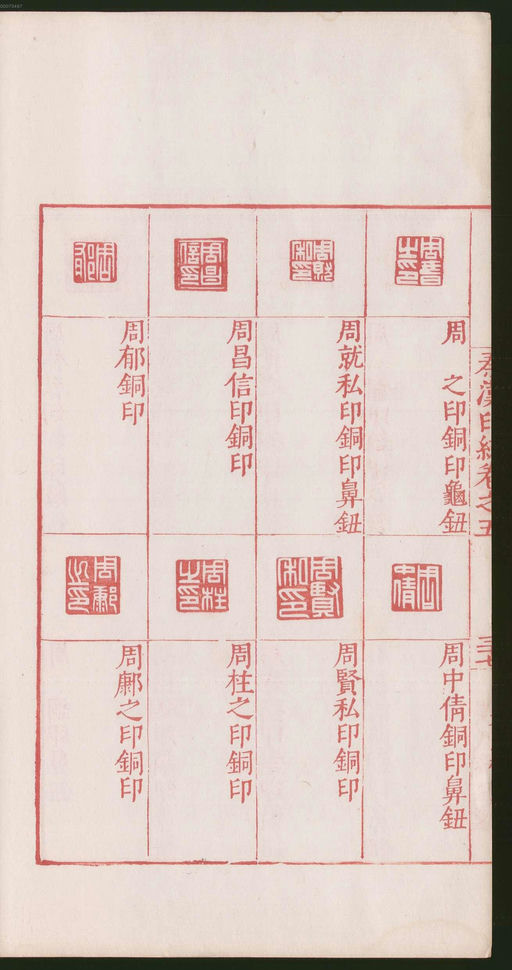 00073487
秦漢印統卷之五
三七
周　之印銅印龜鈕
周就私印銅印鼻鈕
周昌信印銅印
周郁銅印
周中倩銅印鼻鈕
周賢私印銅印
周柱之印銅印
周鄺之印銅印